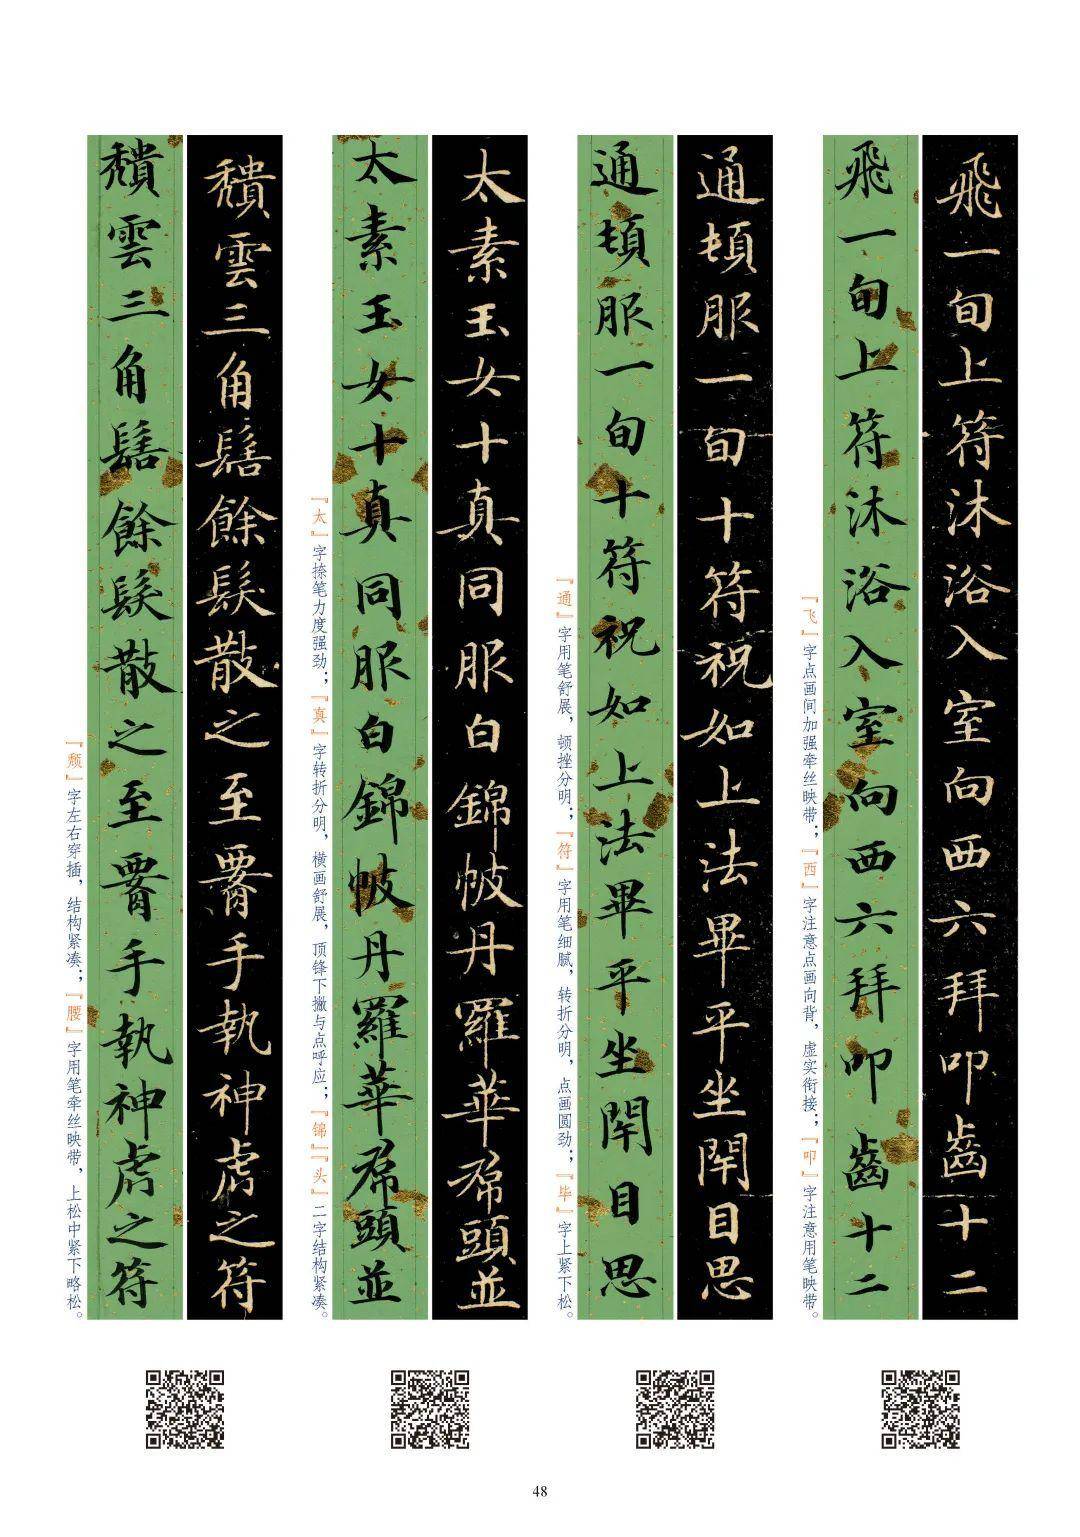 飛一旬上符沐浴入室向西六拜叩齒十二
飛一旬上符沐浴入室向西六拜叩齒十二
『飞』字点画间加强牵丝映带；『西』字注意点画向背，虚实衔接；『叩』字注意用笔映带。
通頓服一旬十符祝如上法畢平坐閇目思
通頓服一旬十符祝如上法畢平坐閇目思
『通』字用笔舒展，顿挫分明；『符』字用笔细腻，转折分明，点画圆劲；『毕』字上紧下松。
太素玉女十真同服白錦帔丹羅華帬頭並
太素玉女十真同服白錦帔丹羅華帬頭並
『太』字捺笔力度强劲；『真』字转折分明，横画舒展，顶锋下撇与点呼应；『锦』『头』二字结构紧凑。
穨雲三角髻餘髮散之至腰手執神虎之符
穨雲三角髻餘髮散之至腰手執神虎之符
『颓』字左右穿插，结构紧凑；『腰』字用笔牵丝映带，上松中紧下略松。
48